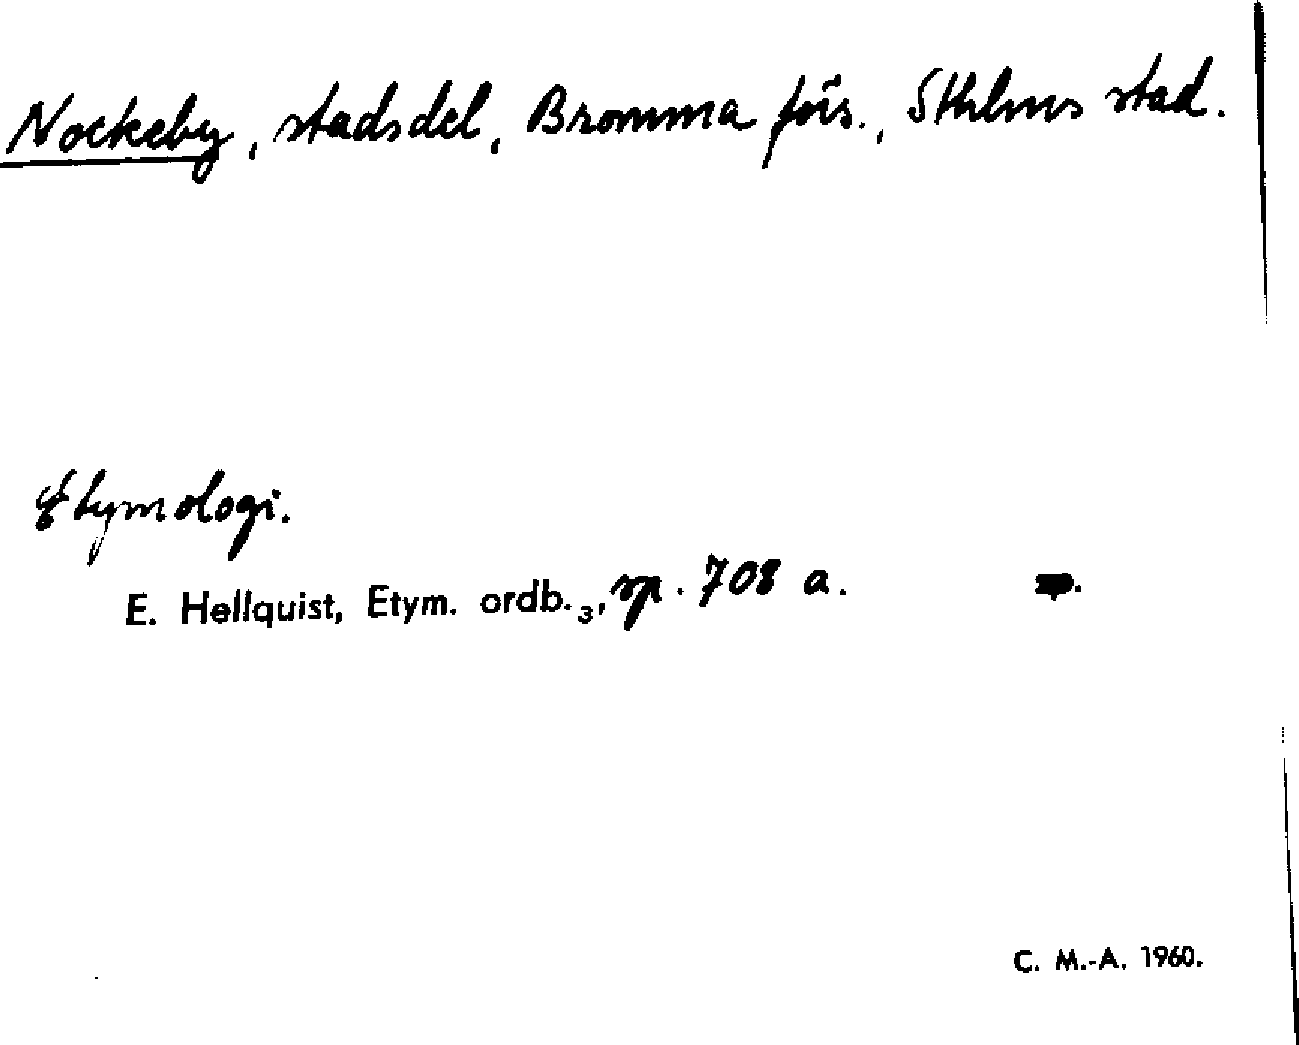 Nockeby, stadsdel, Bromma förs., Sthlms stad.
Etymologi.
E. Hellquist, Etym. ordb.₃, sp. 708 a.
C. M.-A. 1960.